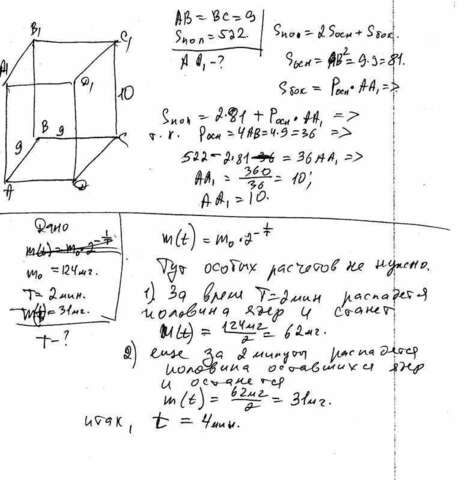 B₁
C₁
A₁
D₁
10
B
9
C
9
A
D
AB = BC = 9
Sпол = 522
AA₁ - ?
Sпол = 2Sосн + Sбок.
Sосн = AB² = 9·9 = 81.
Sбок = Pосн · AA₁ =>
Sпол = 2·81 + Pосн · AA₁ =>
т.к. Pосн = 4AB = 4·9 = 36 =>
522 - 2·81 = 36AA₁ =>
AA₁ = 360/36 = 10;
AA₁ = 10.
Дано
m(t) = m₀ · 2^(-t/T)
m₀ = 124 мг.
T = 2 мин.
m(t) = 31 мг.
t - ?
m(t) = m₀ · 2^(-t/T)
Тут особых расчетов не нужно.
1) За время T = 2 мин распадется
половина ядер и станет
m(t) = 124мг/2 = 62 мг.
2) еще за 2 минуты распадется
половина оставшихся ядер
и останется
m(t) = 62мг/2 = 31 мг.
итак, t = 4 мин.